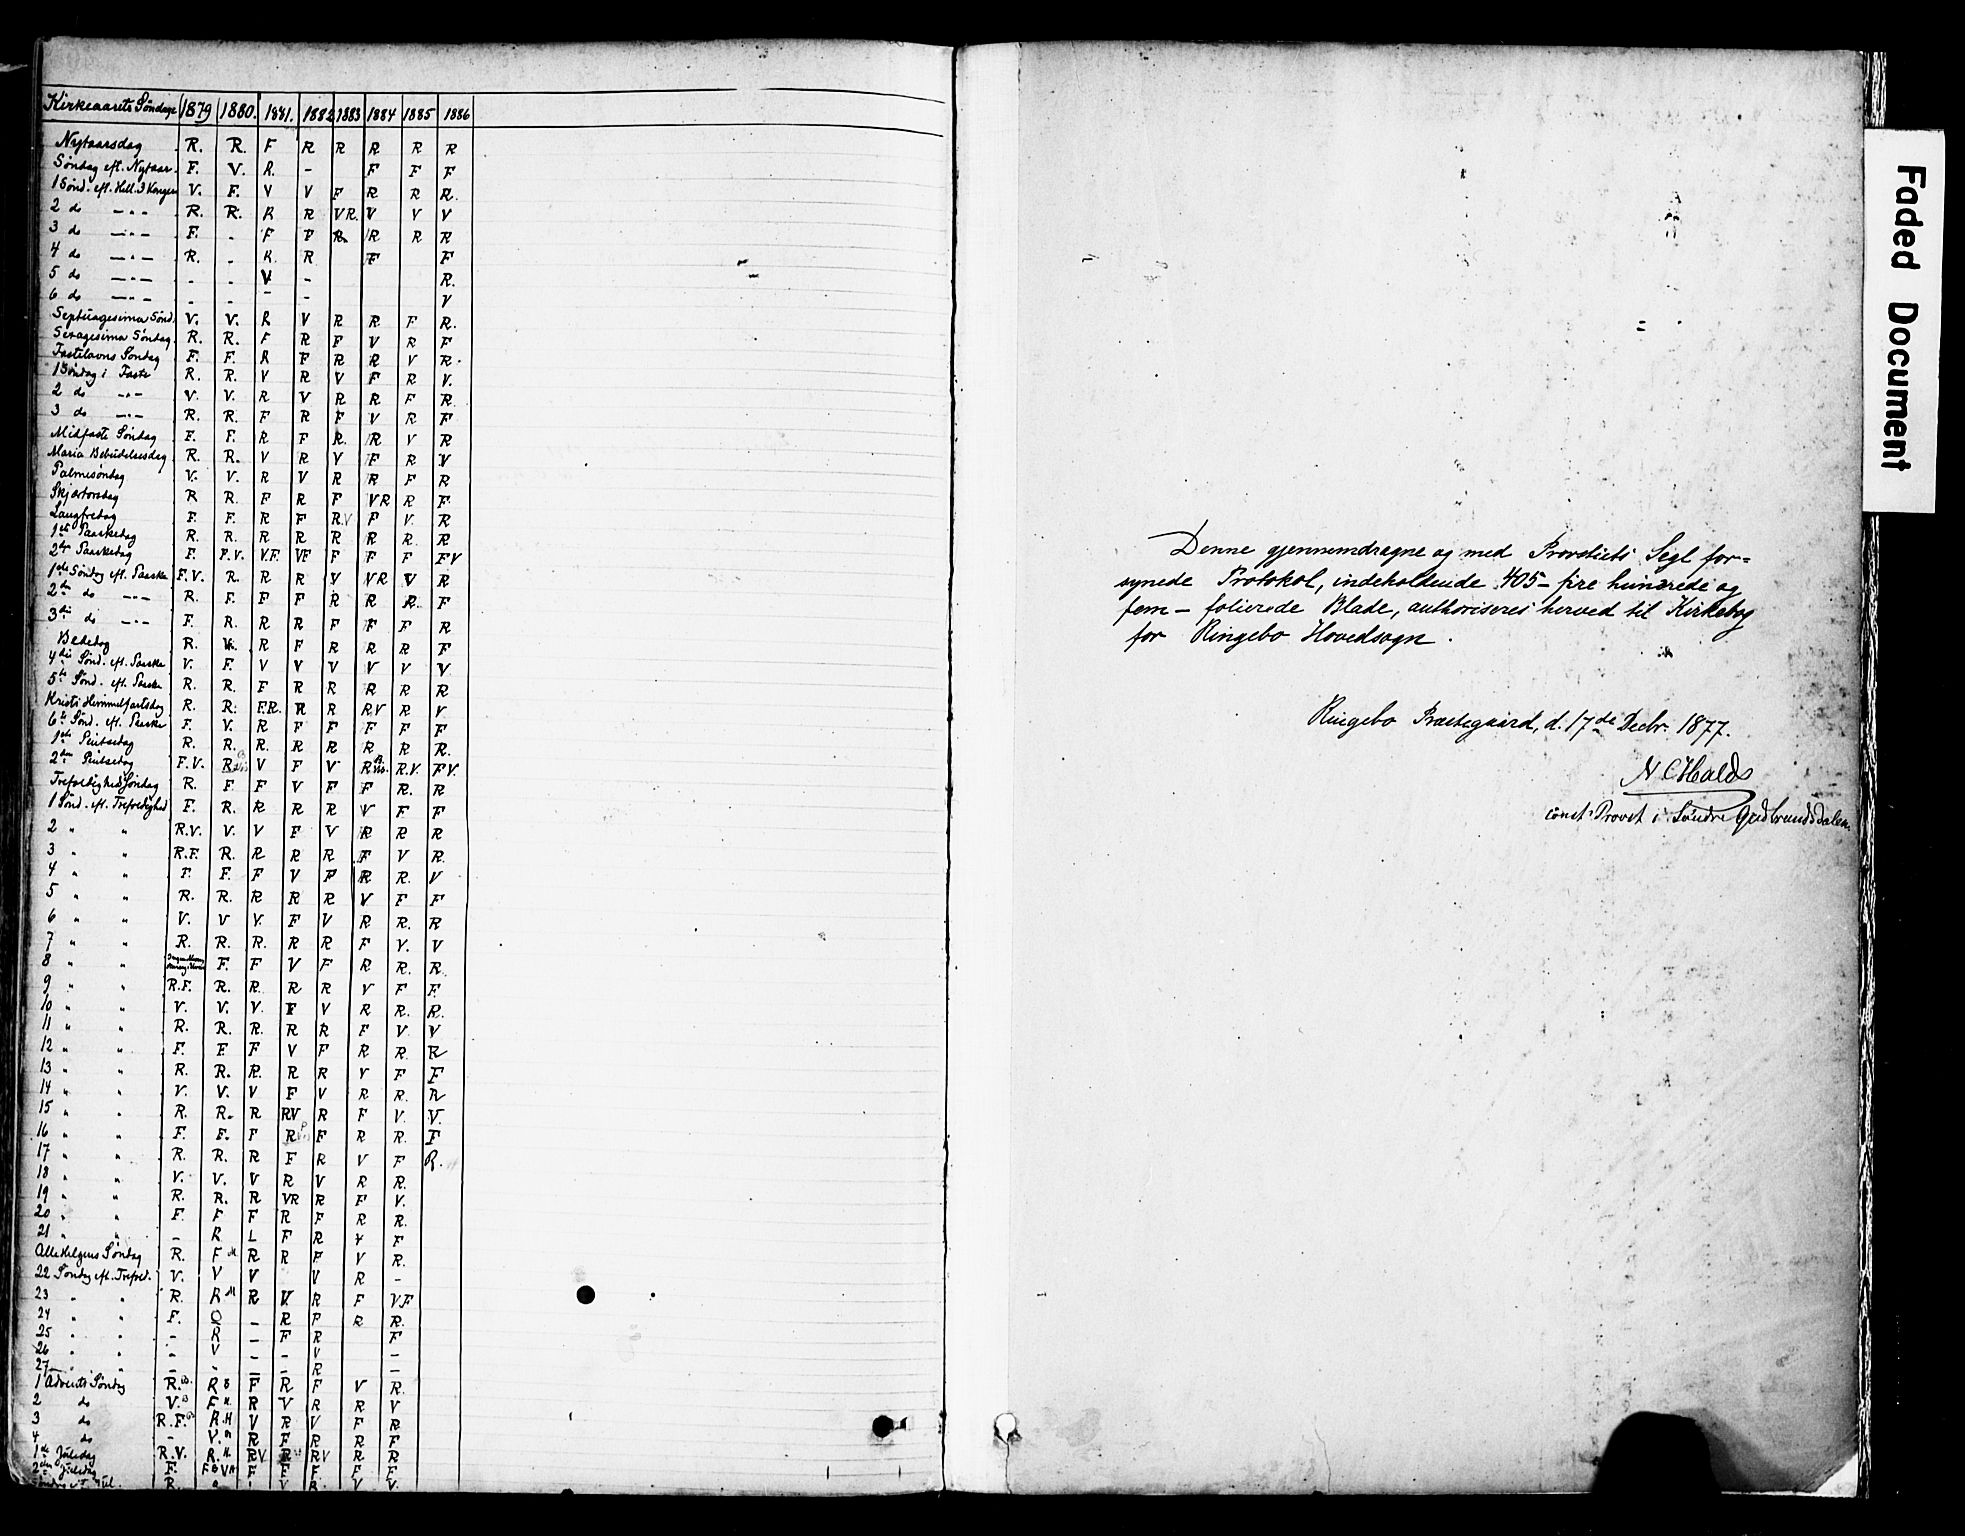 Kirkeaarets Søndage 1879 1880. 1881. 1882 1883 1884 1885 1886
Nytaarsdag R. R. F R R R R R
Søndag eft. Nytaar. F. V. R. - F F F
1 Sønd. eft. Hell. 3 Konger V. F. V V F R R R.
2 do —"— R. R. R R VR. V V V
3 do —"— F. - F F R R R R
4 do —"— R. - R. R F F
5 do —"— - - V - R.
6 do —"— - - - - V
Septuagesima Sønd. V. V. R V R R F R.
Sexagesima Søndag. R. R. F R F V R F
Fastelavns Søndag F. F. R F R R V R.
1 Søndag i Faste R. R. V R V F R V.
2 do —"— V. V. R V R R F R.
3 do —"— R. R. F R F V R F
Midfaste Søndag F. F. R F R. R V R
Maria Bebudelsesdag R. R. V R V F R V
Palmesøndag V. V. R V R R F R
Skjærtorsdag R R. F R F VR R F
Langfredag F. F. R F R.V F V. R
1ste Paaskedag R. R. R R R R R. R
2den Paaskedag F. F.V. V.F. VF F F F FV
1ste Søndag eft. Paaske F.V. R. R R V VR V R
2den do —"— R. F. F F R R R. F
3die do —"— F. R. R R F F F R
Bededag R. R F R R R F
4die Sønd. eft. Paaske V. F. V V V V V V.
5te Sønd. eft. Paaske R. R. F R R R R R
Kristi Himmelfartsdag R. R. F.R. R R RV R V
6te Sønd. eft. Paaske F. V. R F F F F F
1ste Pintsedag R. R. R. R R R R R.
2den Pintsedag F.V. R V F V R R.V. FV.
Trefoldighed Søndag R. F. F V F F R. R
1 Sønd. eft. Trefoldighed F. R. R R R V F F
2 " " R.V. V. V F V R R R
3 " " R.F. R. R R R F V R.
4 " " F. F. F V F R R. V
5 " " R. R. R R R V F F
6 " " V. V V. F V R R. R
7 " " R. R. R. R R F V. V
8 " " F. F V F R R. R.
9 " " R.F. R. R. R R V F F.
10 " " V. V. V. F V R R. R.
11 " " R. R. R. R R F V. V
12 " " F. F. F V F R R. R
13 " " R. R. R. R R V F F
14 " " V. V. V F V R R. R
15 " " R. R. R RV R F V. V.
16 " " F. F. F R F R R. F
17 " " R. R. R F R V F R.
18 " " V. V. V R V R R.
19 " " R. R. R VR R F V.
20 " " F. F F R F R R.
21 " " - R L F R V F
Allehelgens Søndag R. F M R R F V R.
22 Søndag eft. Trefold. V. V V V R -
23 " " R. R M R V. R F VF
24 " " F. - R F R R.
25 " " - R - F R F
26 " " - V - - V -
27 " " - - - - R -
1 Advents Søndag R. R B F R F V R.
2 do V. F R V R R V
3 do R.F. R.H V R V F R
4 do - V. R F R R F
1ste Juledag R.V. R. RV R RV R R
2den Juledag F. F F F F F
Faded Document
Denne gjennemdragne og med Provstiets Segl for=
synede Protokol, indeholdende 405 - fire hundrede og
fem - folierede Blade, authoriseres herved til Kirkebog
for Ringebo Hovedsogn.
Ringebo Præstegaard, d. 17de Decbr. 1877.
N C Halds
const. Provst i Søndre Gudbrandsdalen.